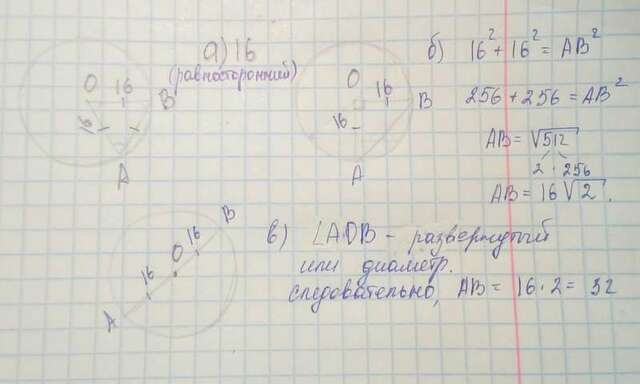 а) 16
(равносторонний)
O 16 B
16
A
O
16 B
16
A
б) 16² + 16² = AB²
256 + 256 = AB²
AB = √512
2 · 256
AB = 16√2.
B
16
O
16
A
в) ∠AOB - развернутый
или диаметр.
следовательно, AB = 16 · 2 = 32